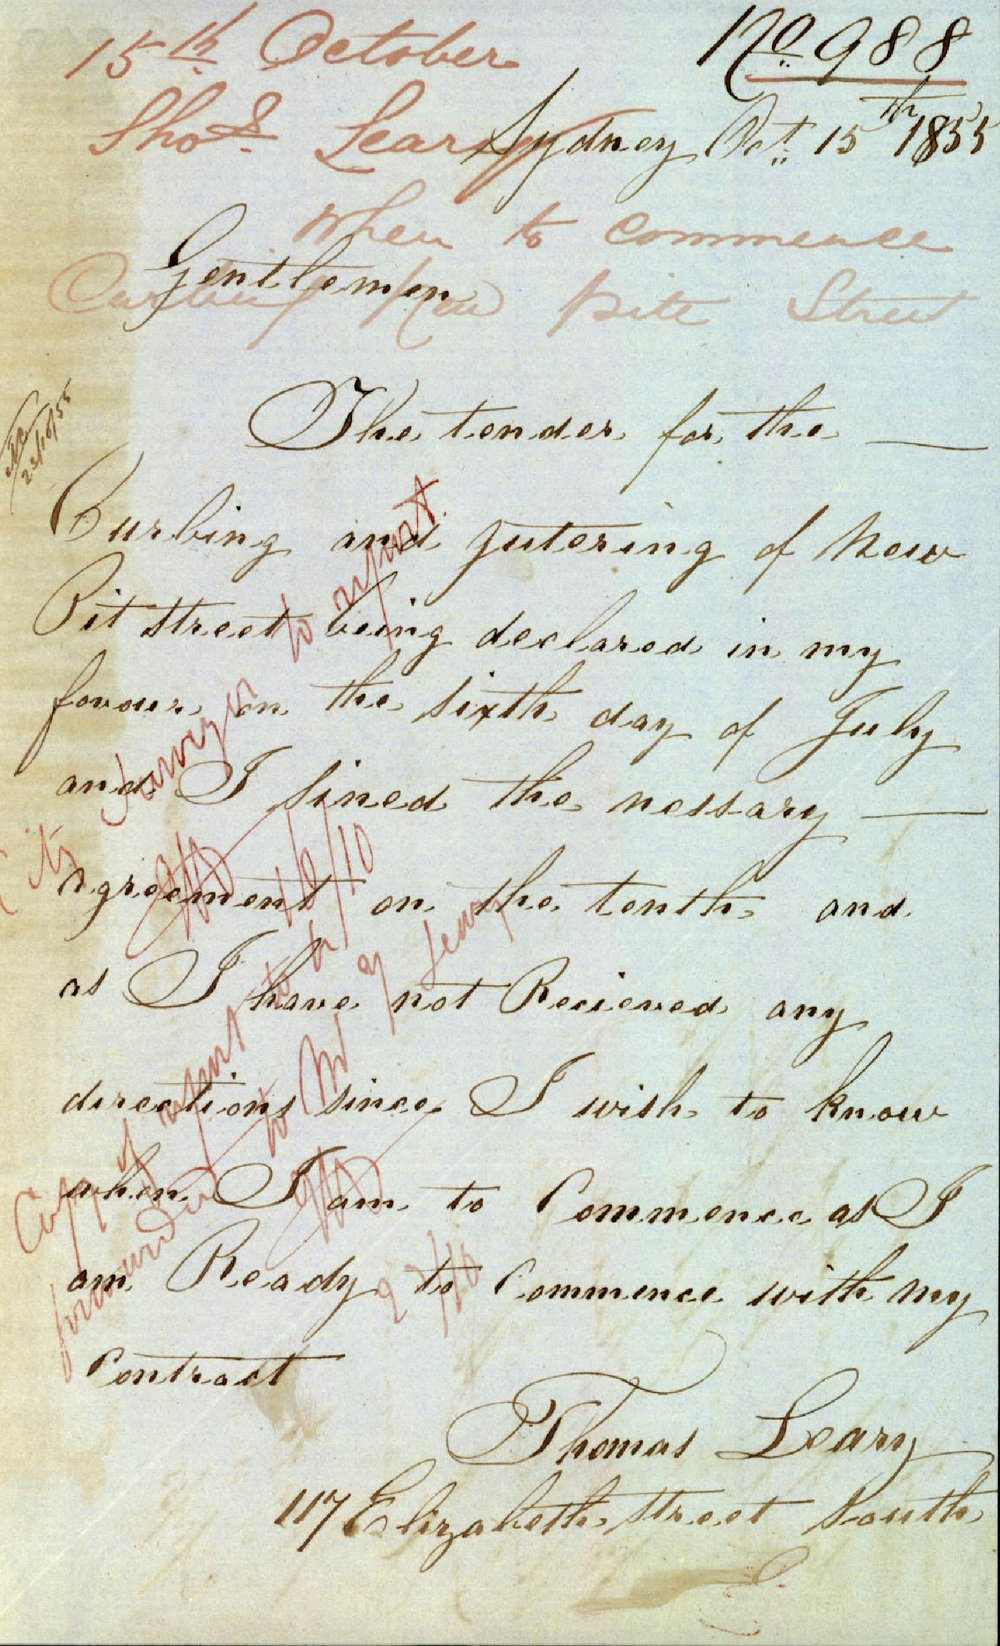 15th October
No 988
Thos Leary
Sydney Oct 15th 1855
When to commence
Curbing New Pitt Street
Gentlemen
The tender for the
Curbing and gutering of New
Pit street being declared in my
favour on the sixth day of July
and I sined the nessary
agreement on the tenth and
as I have not Recieved any
directions since I wish to know
when I am to Commence as I
am Ready to Commence with my
Contract
Thomas Leary
117 Elizabeth street South
23/10/55
City Surveyor to report
16/10
Copy of report to be
forwarded to Mr Leary